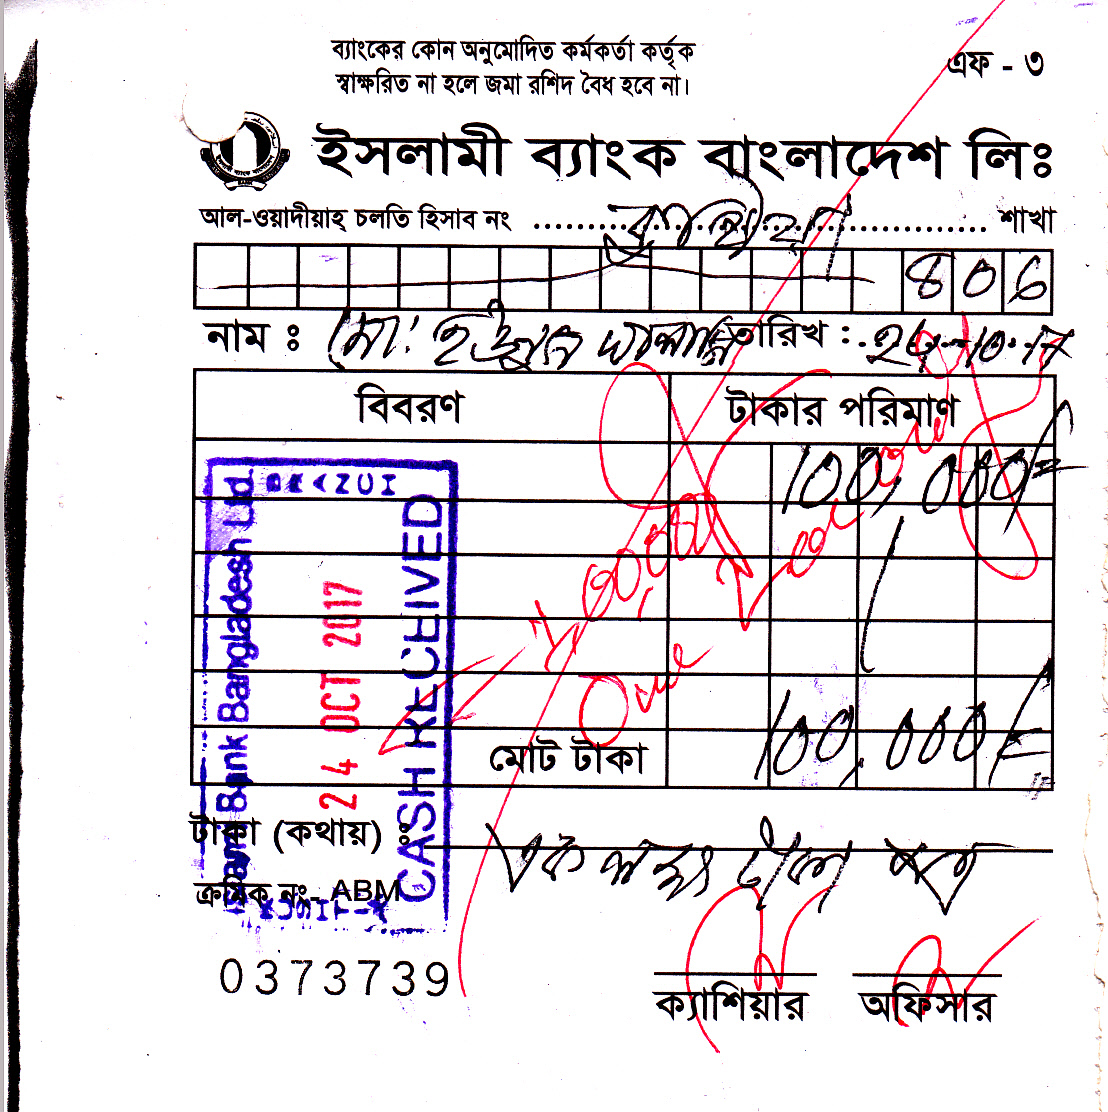 ব্যাংকের কোন অনুমোদিত কর্মকর্তা কর্তৃক
স্বাক্ষরিত না হলে জমা রশিদ বৈধ হবে না।
এফ - ৩
ইসলামী ব্যাংক বাংলাদেশ লিঃ
আল-ওয়াদীয়াহ্ চলতি হিসাব নং .................... শাখা
806
নাম : মো: তারিখ : 24-10-17
বিবরণ টাকার পরিমাণ
100,000/=
Bank Bangladesh Ltd.
24 OCT 2017
CASH RECEIVED
মোট টাকা 100,000/=
টাকা (কথায়) : এক লক্ষ টাকা
ক্রমিক নং- ABM
0373739
ক্যাশিয়ার অফিসার